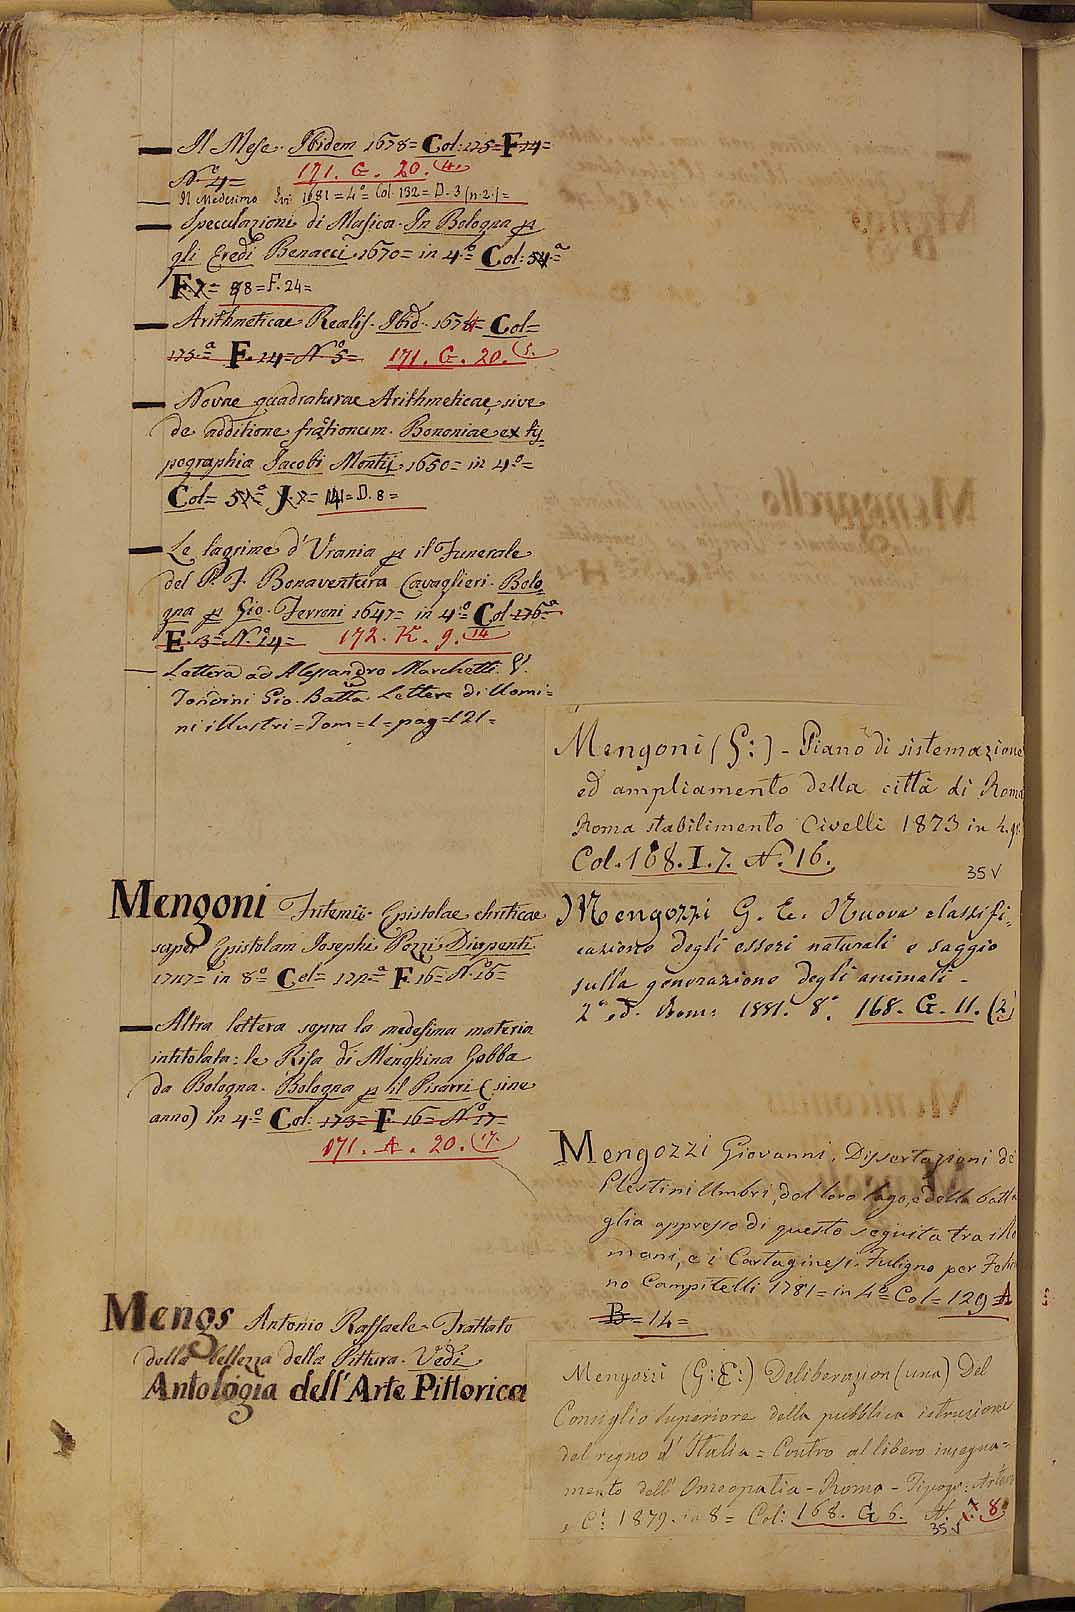 Il Mese. Ibidem 1678= Col: 175= F 14=
N.º 4= 171. G. 20. (4.
Il Medesimo Ivi 1681=4º= Col. 132= D. 3 (n. 2.)=
Speculazioni di Musica. In Bologna p
gli Eredi Benacci 1670= in 4.º Col: 54.ª
F. 7= 98= F. 24=
Arithmeticae Realis. Ibid. 1674= Col=
175.ª F. 14= N.º 5= 171. G. 20. (5.
Novae quadraturae Arithmeticae, sive
de additione frationum. Bononiae ex ty
pographia Jacobi Montij. 1650= in 4.º=
Col= 51.ª J. 7= 141= D. 8=
Le lagrime d'Urania p il Funerale
del P. F. Bonaventura Cavaglieri. Bolo
gna p Gio. Ferroni 1647= in 4.º Col 176.ª
E. 3= N.º 14= 172. K. 9. 14
Lettera ad Alessandro Marchetti. V.
Fondini Gio. Batta. Lettere di Uomi=
ni illustri= Tom= 1= pag= 121=
Mengoni Epistolae chriticae
super Epistolam Josephi Pozzi
1747= in 8.º Col= 172=ª F. 16= N.º 16=
Altra lettera sopra la medesima materia
intitolata: le Risa di Menghina Gobba
da Bologna. Bologna p il Pisarri (sine
anno) in 4.º Col: 173= F. 16= N.º 17=
171. A. 20. (17.
Mengs Antonio Raffaele. Trattato
della bellezza della Pittura. Vedi
Antologia dell'Arte Pittorica
Mengoni (G:) - Piano di sistemazione
ed ampliamento della città di Roma
Roma stabilimento Civelli 1873 in 4.
Col. 168. I. 7. N. 16.
35 V
Mengozzi G. E. Nuova classifi=
cazione degli esseri naturali e saggio
sulla generazione degli animali -
2ª ed. Roma 1881. 8º. 168. G. 11. (2)
Mengozzi Giovanni. Dissertazioni de'
Plestini Umbri, del loro lago, e della batta
glia appresso di questo seguita tra i Ro
mani, e i Cartaginesi. Fuligno per Feli
no Campitelli 1781= in 4.º Col= 129= A
B= 14=
Mengozzi (G: E:) Deliberazion (una) Del
Consiglio Superiore della pubblica istruzione
del regno d'Italia = Contro al libero insegna=
mento dell'Omeopatia - Roma - Tipogr:
C. 1879. in 8= Col: 168. G 6. N. 8
35 V